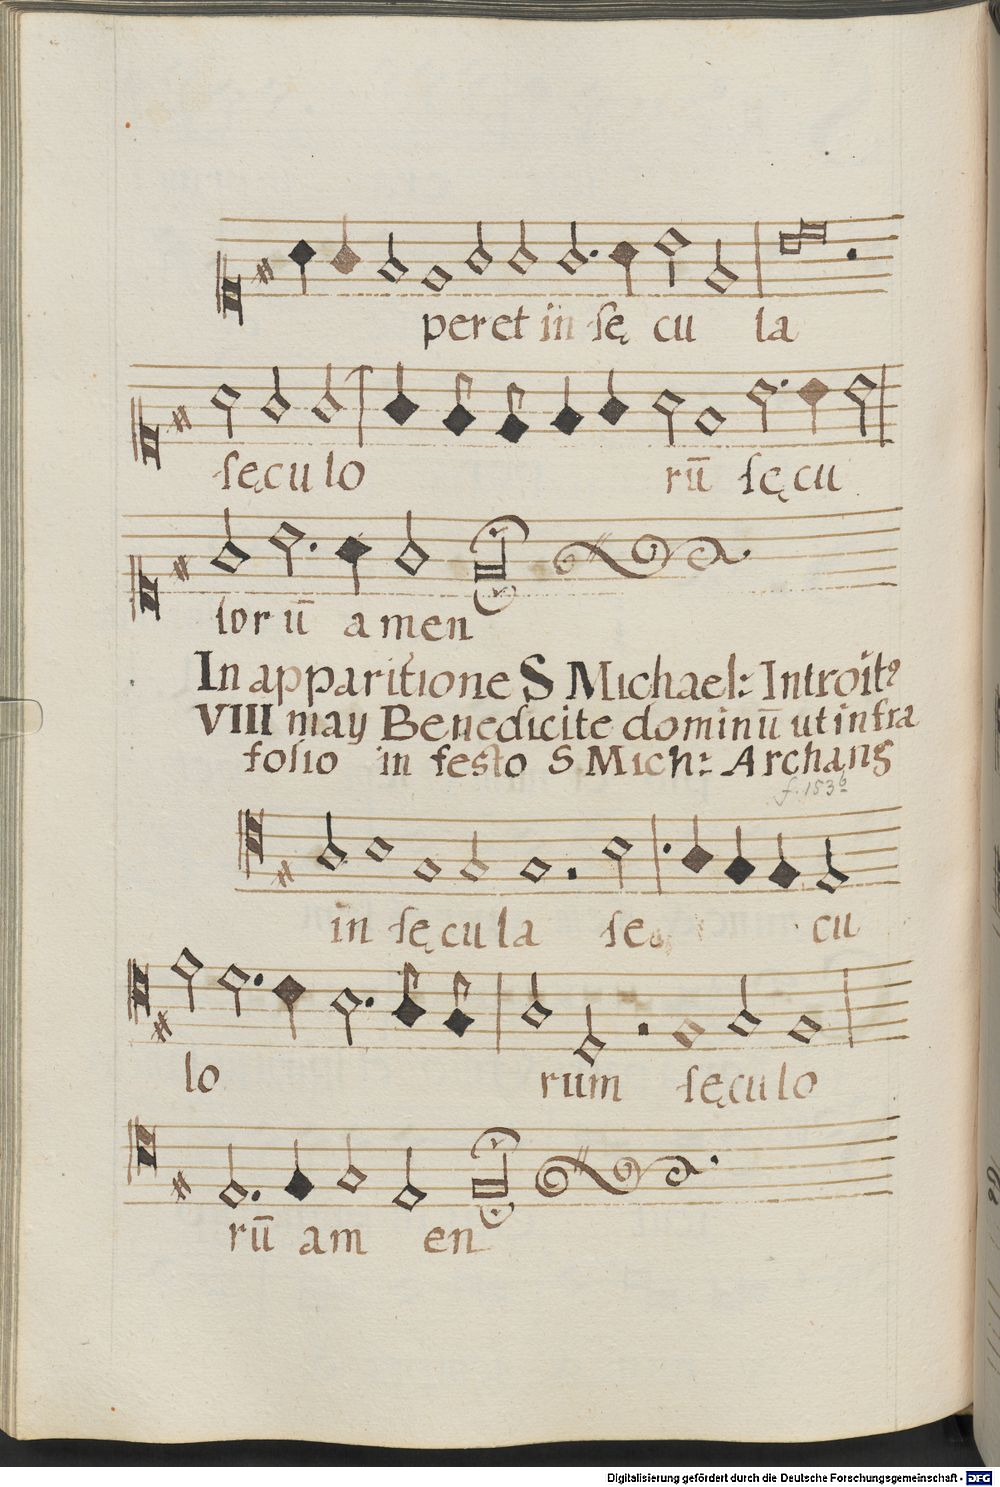 peret in sę cu la
sęculo rū sę cu
lorū amen
In apparitione S Michael: Introitꝰ
VIII may Benedicite dominū ut infra
folio in festo S Mich: Archang
f. 153b
in sęcula se cu
lo rum sęculo
rū am en
Digitalisierung gefördert durch die Deutsche Forschungsgemeinschaft - DFG